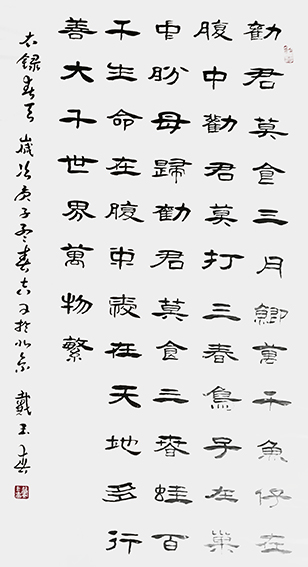 勸君莫食三月鯽萬千魚仔在
腹中勸君莫打三春鳥子在巢
中盼母歸勸君莫食三春蛙百
千生命在腹中在天地多行
善大千世界萬物繁
右錄春天 歲次庚子春吉日於北京 戴玉